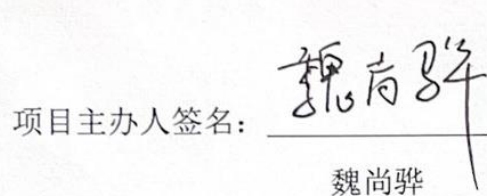 项目主办人签名：魏尚骅
魏尚骅